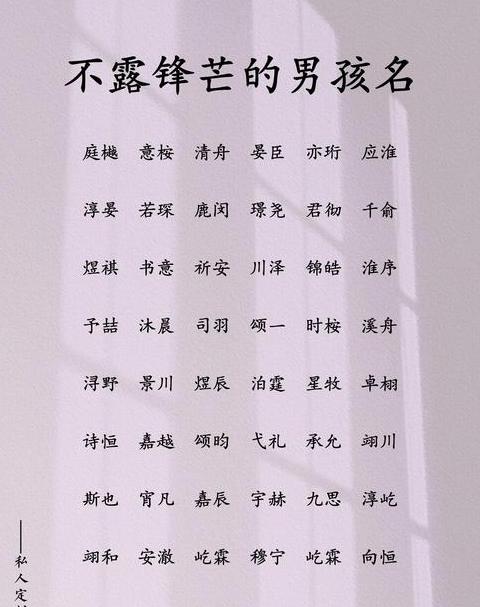 不露锋芒的男孩名
庭樾 意桉 清舟 晏臣 亦珩 应淮
淳晏 若琛 鹿闵 璟尧 君彻 千俞
煜祺 书意 祈安 川泽 锦皓 淮序
予喆 沐晨 司羽 颂一 时桉 溪舟
浔野 景川 煜辰 泊霆 星牧 卓栩
诗恒 嘉越 颂昀 弋礼 承允 翊川
斯也 宵凡 嘉辰 宇赫 九思 淳屹
翊和 安澈 屹霖 穆宁 屹霖 向恒
——私人定